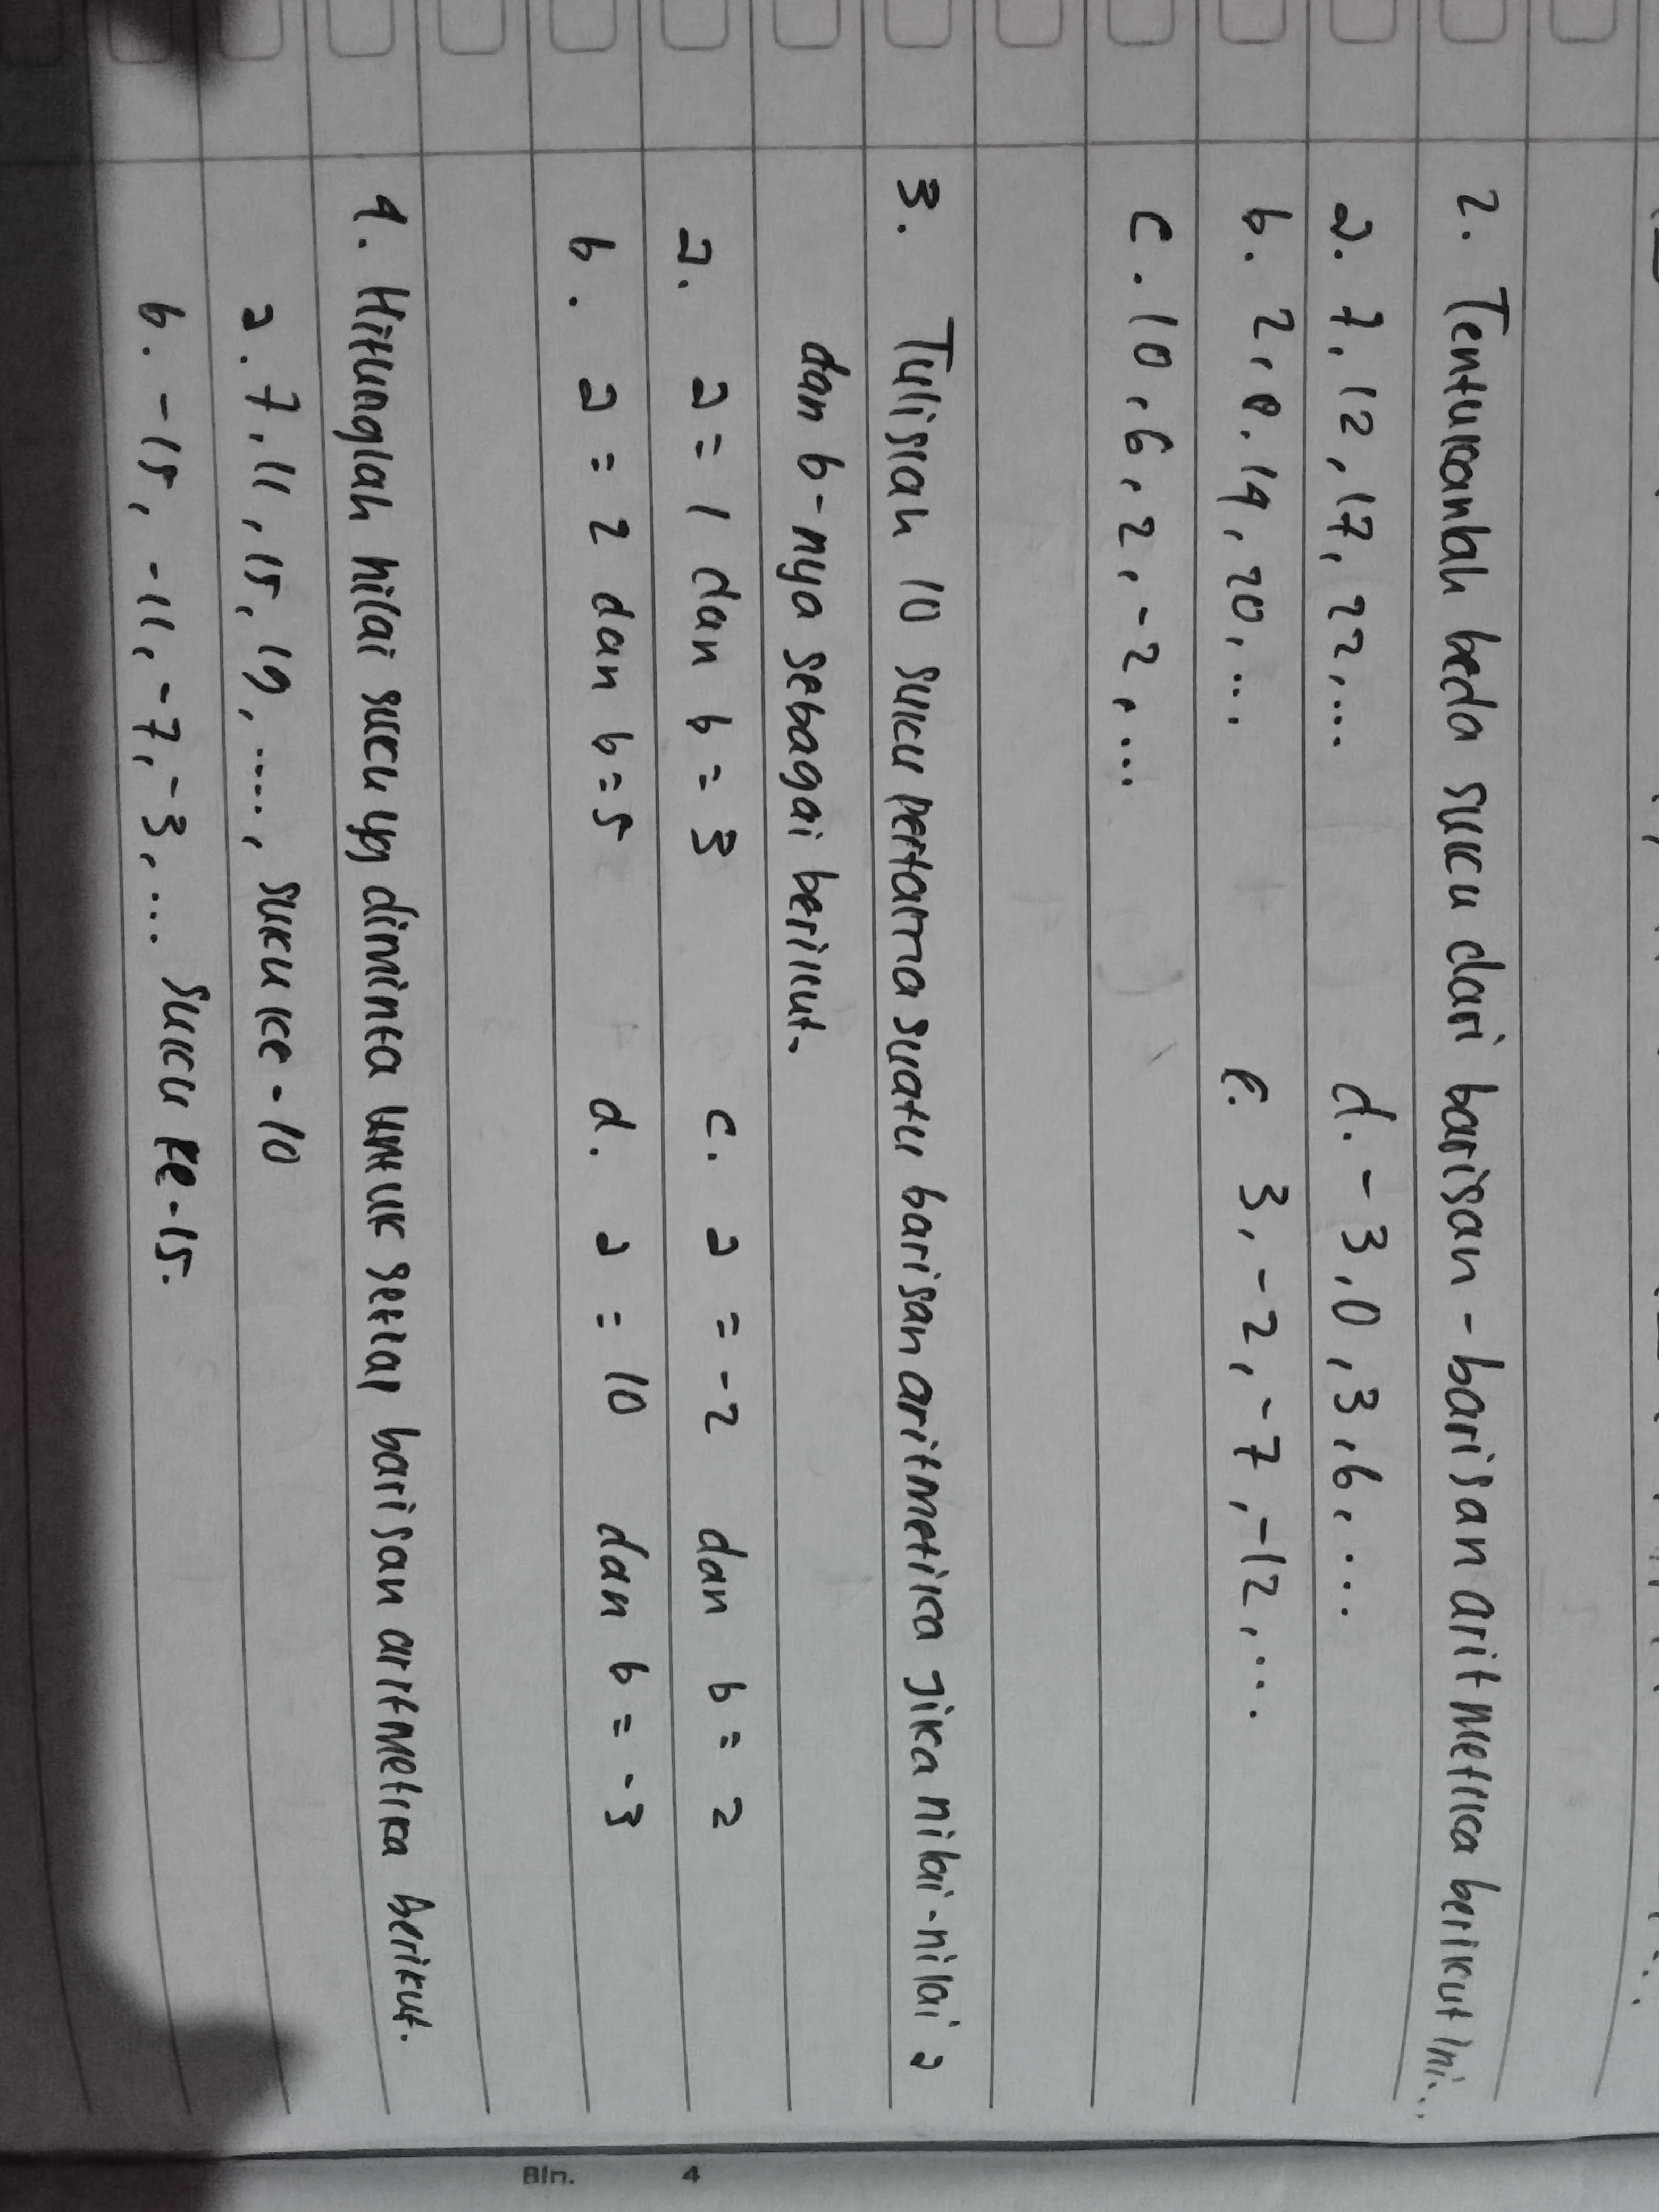 2. Tentukanlah beda suku dari barisan - barisan aritmetika berikut ini...
a. 7, 12, 17, 22, ... d. -3, 0, 3, 6, ...
b. 2, 8, 14, 20, ... e. 3, -2, -7, -12, ...
c. 10, 6, 2, -2, ...
3. Tulislah 10 suku pertama suatu barisan aritmetika jika nilai-nilai a
dan b-nya sebagai berikut.
a. a = 1 dan b = 3 c. a = -2 dan b = 2
b. a = 2 dan b = 5 d. a = 10 dan b = -3
4. Hitunglah nilai suku yg diminta untuk setiap barisan aritmetika berikut.
a. 7, 11, 15, 19, ...., suku ke-10
b. -15, -11, -7, -3, ... suku ke-15.
Bln. 4